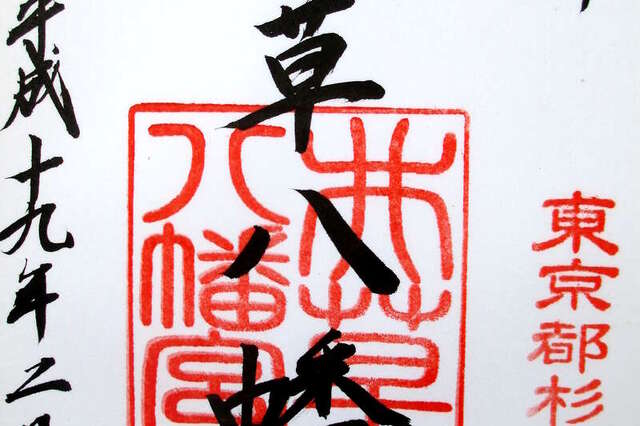 東京都杉
草八幡
井草
八幡宮
平成十九年二月